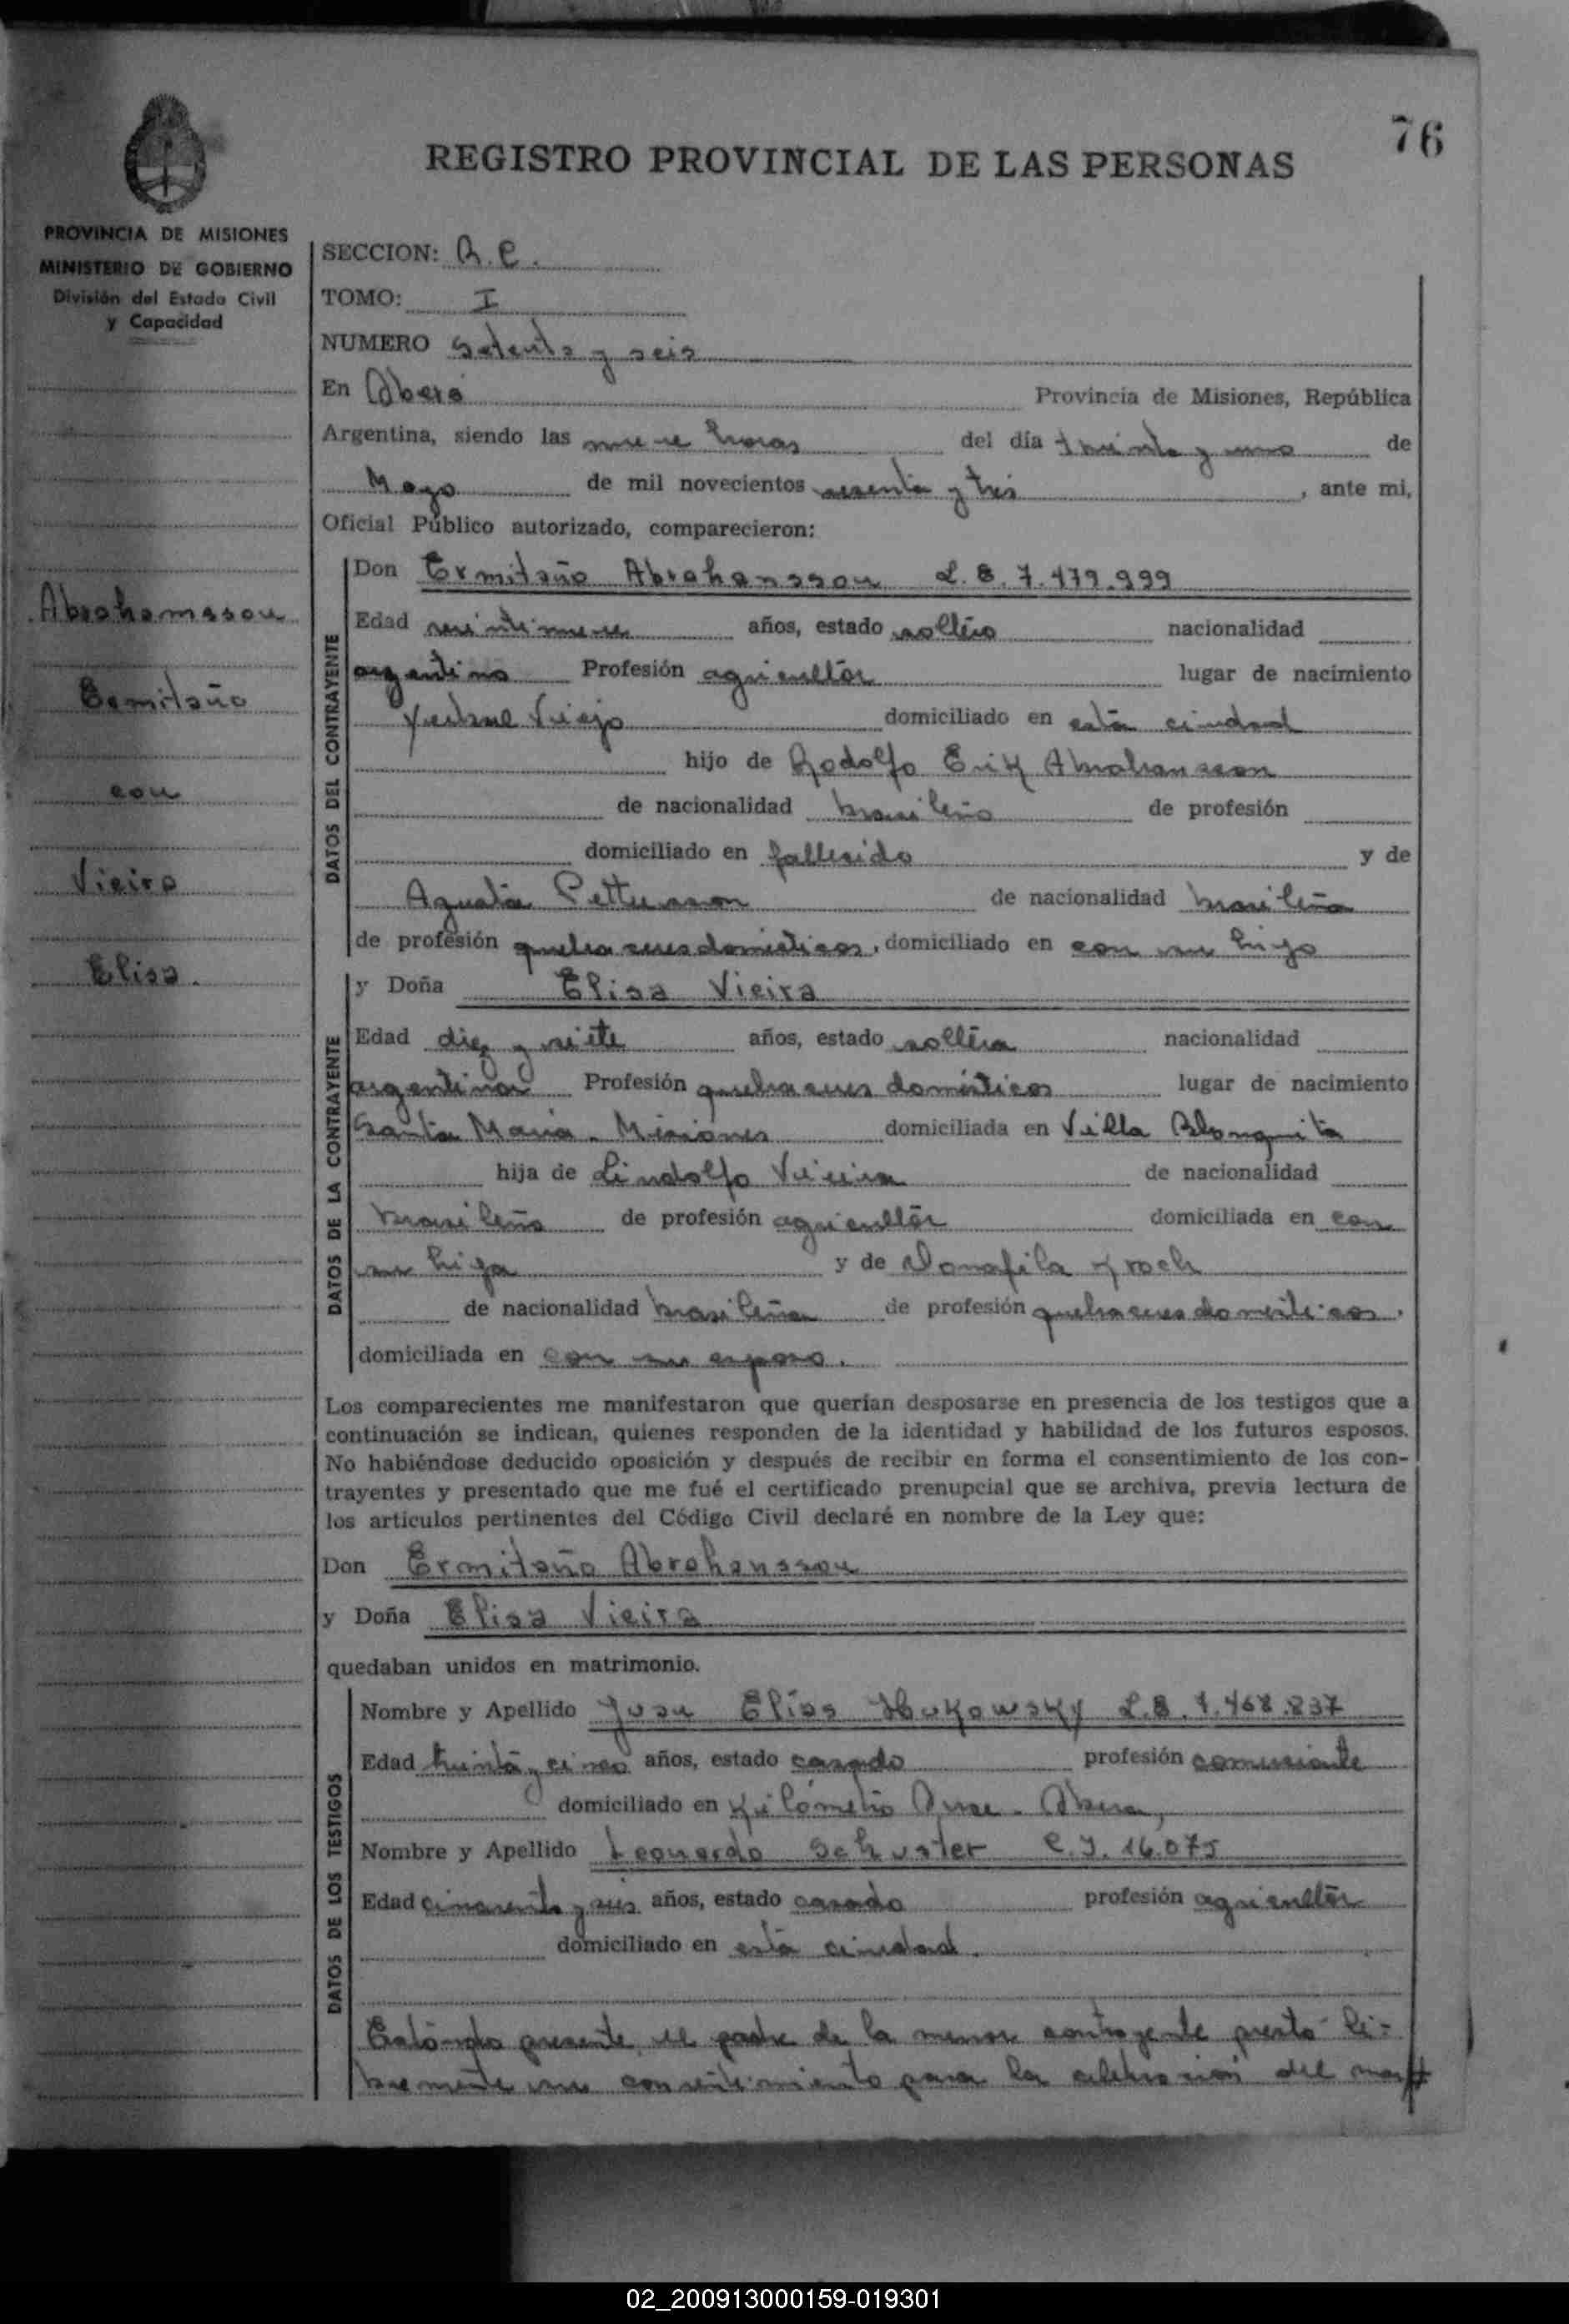 76
REGISTRO PROVINCIAL DE LAS PERSONAS
PROVINCIA DE MISIONES
MINISTERIO DE GOBIERNO
División del Estado Civil
y Capacidad
Abrahamsson
Ermitaño
con
Vieira
Elisa.
SECCION: R.C.
TOMO: I
NUMERO setenta y seis
En Oberá Provincia de Misiones, República
Argentina, siendo las nueve horas del día treinta y uno de
Mayo de mil novecientos sesenta y tres, ante mi,
Oficial Público autorizado, comparecieron:
DATOS DEL CONTRAYENTE
Don Ermitaño Abrahansson L.E. 7.479.999
Edad veintinueve años, estado soltero nacionalidad
argentino Profesión agricultor lugar de nacimiento
Viejo domiciliado en esta ciudad
hijo de Rodolfo Erik Abrahansson
de nacionalidad brasileño de profesión
domiciliado en fallecido y de
Pettersson de nacionalidad brasileña
de profesión quehaceres domésticos, domiciliado en con su hijo
DATOS DE LA CONTRAYENTE
y Doña Elisa Vieira
Edad diez y siete años, estado soltera nacionalidad
argentina Profesión quehaceres domésticos lugar de nacimiento
Santa María - Misiones domiciliada en Villa Blanquita
hija de Lindolfo Vieira de nacionalidad
brasileño de profesión agricultor domiciliada en con
su hija y de
de nacionalidad brasileña de profesión quehaceres domésticos.
domiciliada en con su esposo.
Los comparecientes me manifestaron que querían desposarse en presencia de los testigos que a
continuación se indican, quienes responden de la identidad y habilidad de los futuros esposos.
No habiéndose deducido oposición y después de recibir en forma el consentimiento de los con-
trayentes y presentado que me fué el certificado prenupcial que se archiva, previa lectura de
los artículos pertinentes del Código Civil declaré en nombre de la Ley que:
Don Ermitaño Abrahansson
y Doña Elisa Vieira
quedaban unidos en matrimonio.
DATOS DE LOS TESTIGOS
Nombre y Apellido Juan Elías L.E. 7.468.837
Edad treinta y cinco años, estado casado profesión comerciante
domiciliado en Kilómetro Once - Oberá,
Nombre y Apellido Leonardo Schuster C.I. 16.075
Edad cincuenta y seis años, estado casado profesión agricultor
domiciliado en esta ciudad.
Estando presente el padre de la menor contrayente prestó li-
bremente su consentimiento para la celebración del ma#
02_200913000159-019301